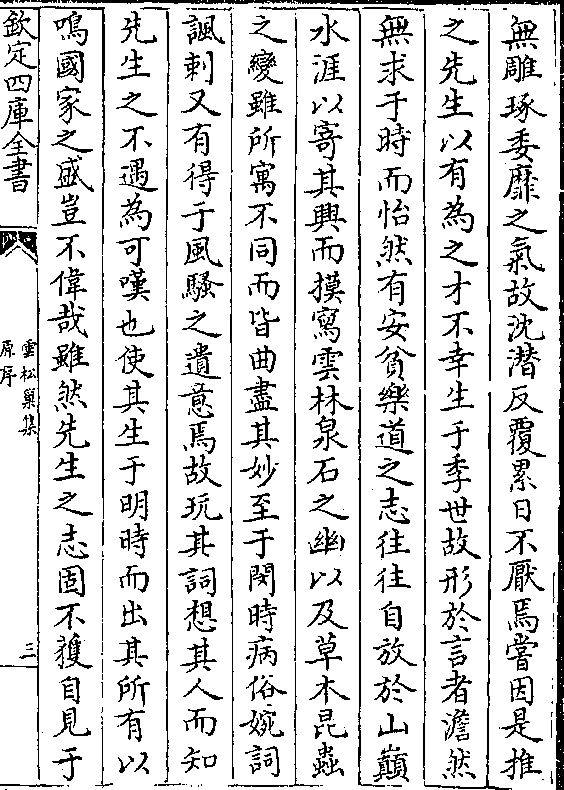 無雕琢委靡之氣故沈潛反覆累日不厭焉嘗因是推
之先生以有為之才不幸生于季世故形於言者澹然
無求于時而怡然有安貧樂道之志往往自放於山巔
水涯以寄其興而摸寫雲林泉石之幽以及草木昆蟲
之變雖所寓不同而皆曲盡其妙至于閔時病俗婉詞
諷刺又有得于風騷之遺意焉故玩其詞想其人而知
先生之不遇為可嘆也使其生于明時而出其所有以
鳴國家之盛豈不偉哉雖然先生之志固不獲自見于
欽定四庫全書
雲松巢集
原序
三